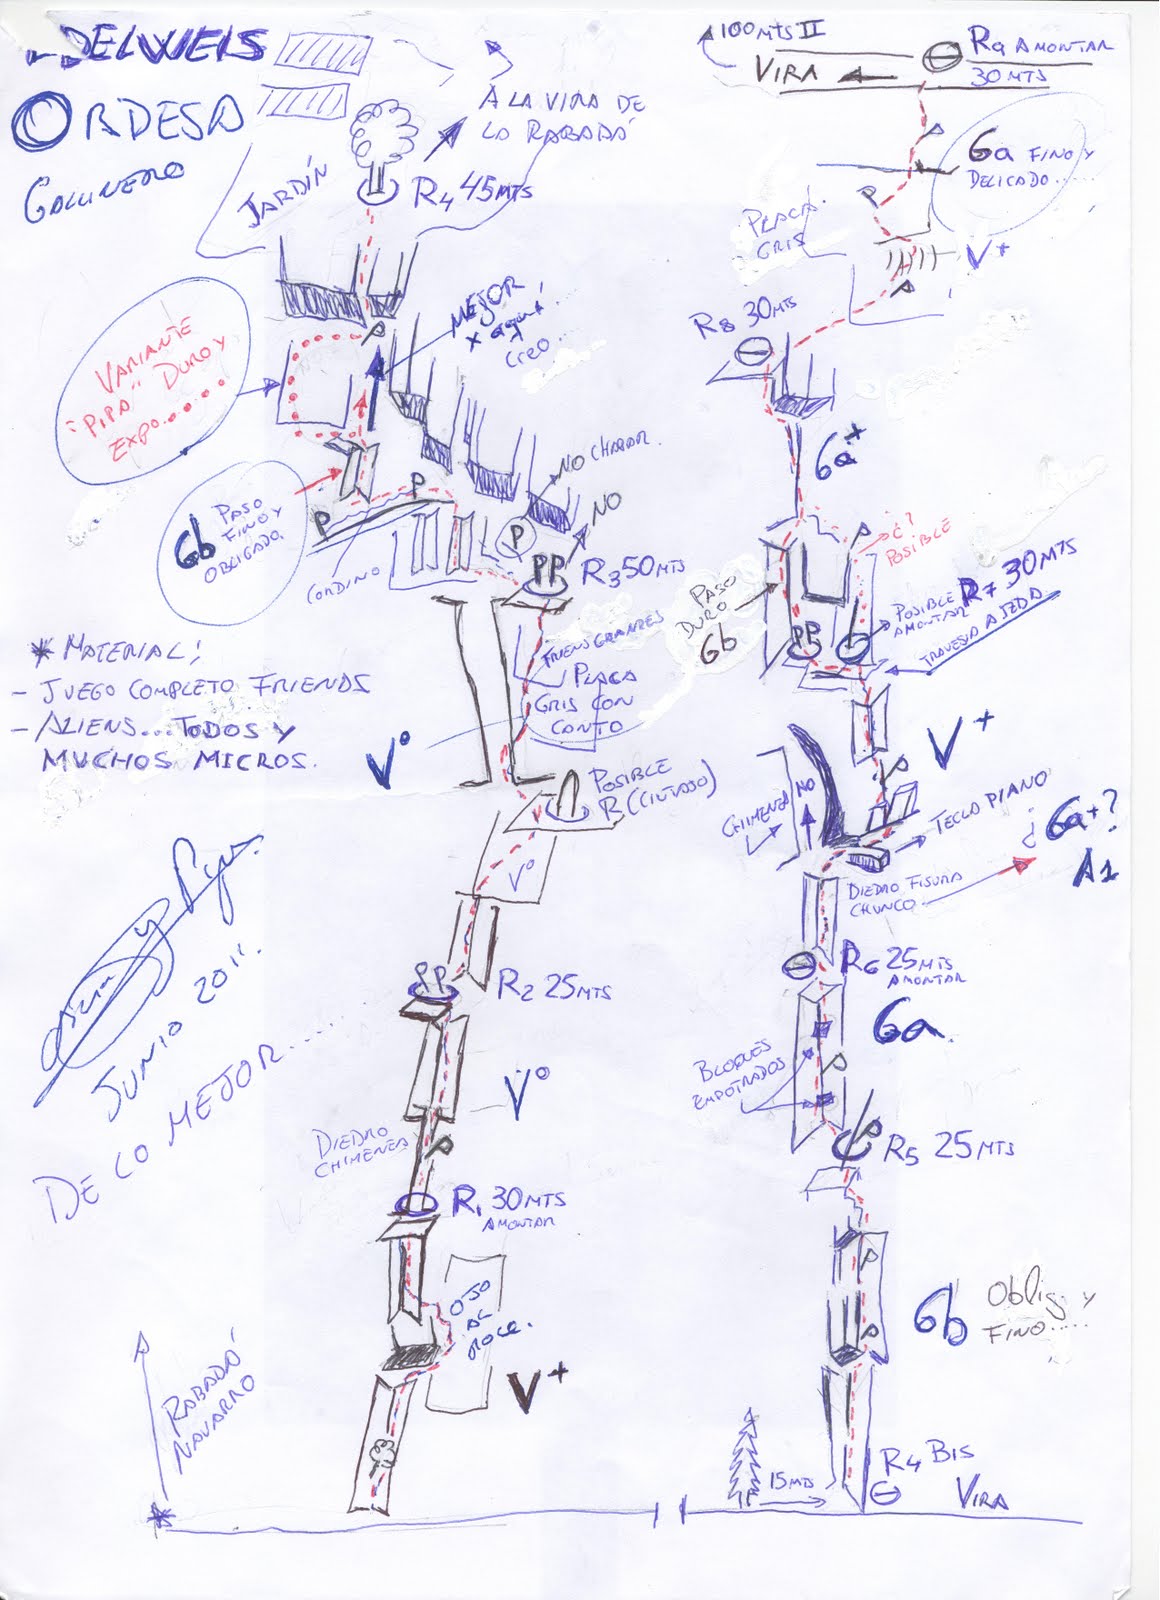 EDELWEIS
ORDESA
GALLINERO
JARDÍN
R4 45MTS
A LA VIRA DE
LA RABADÁ
MEJOR
X aquí
CREO...
VARIANTE
"PIPA" DURO Y
EXPO.....
6b PASO
FINO Y
OBLIGADO.
P
P
P
P
NO CHAPAR.
NO
PP
R3 50MTS
FRIENS GRANDES
PLACA
GRIS CON
CANTO
V°
* MATERIAL:
- JUEGO COMPLETO FRIENDS
- ALIENS...TODOS Y
MUCHOS MICROS.
POSIBLE
R (CINTAJO)
V°
PP
R2 25MTS
V°
DIEDRO
CHIMENEA
P
R1 30MTS
A MONTAR
OJO
AL
ROCE.
V+
JUNIO 2011.
DE LO MEJOR.....
RABADÁ
NAVARRO
100MTS II
VIRA
R9 A MONTAR
30 MTS
6a FINO Y
DELICADO.....
P
PLACA
GRIS
V+
R8 30MTS
6a+
P
¿?
POSIBLE
PASO
DURO
6b
PP
POSIBLE
A MONTAR
R7 30MTS
TRAVESIA A IZDA
V+
P
CHIMENEA
NO
TECLA PIANO
¿6a+?
A1
DIEDRO FISURA
CHUNGO
R6 25MTS
A MONTAR
6a
BLOQUES
EMPOTRADOS
P
P
R5 25MTS
P
P
6b Oblig. y
FINO.....
15MTS
R4 BIS
VIRA